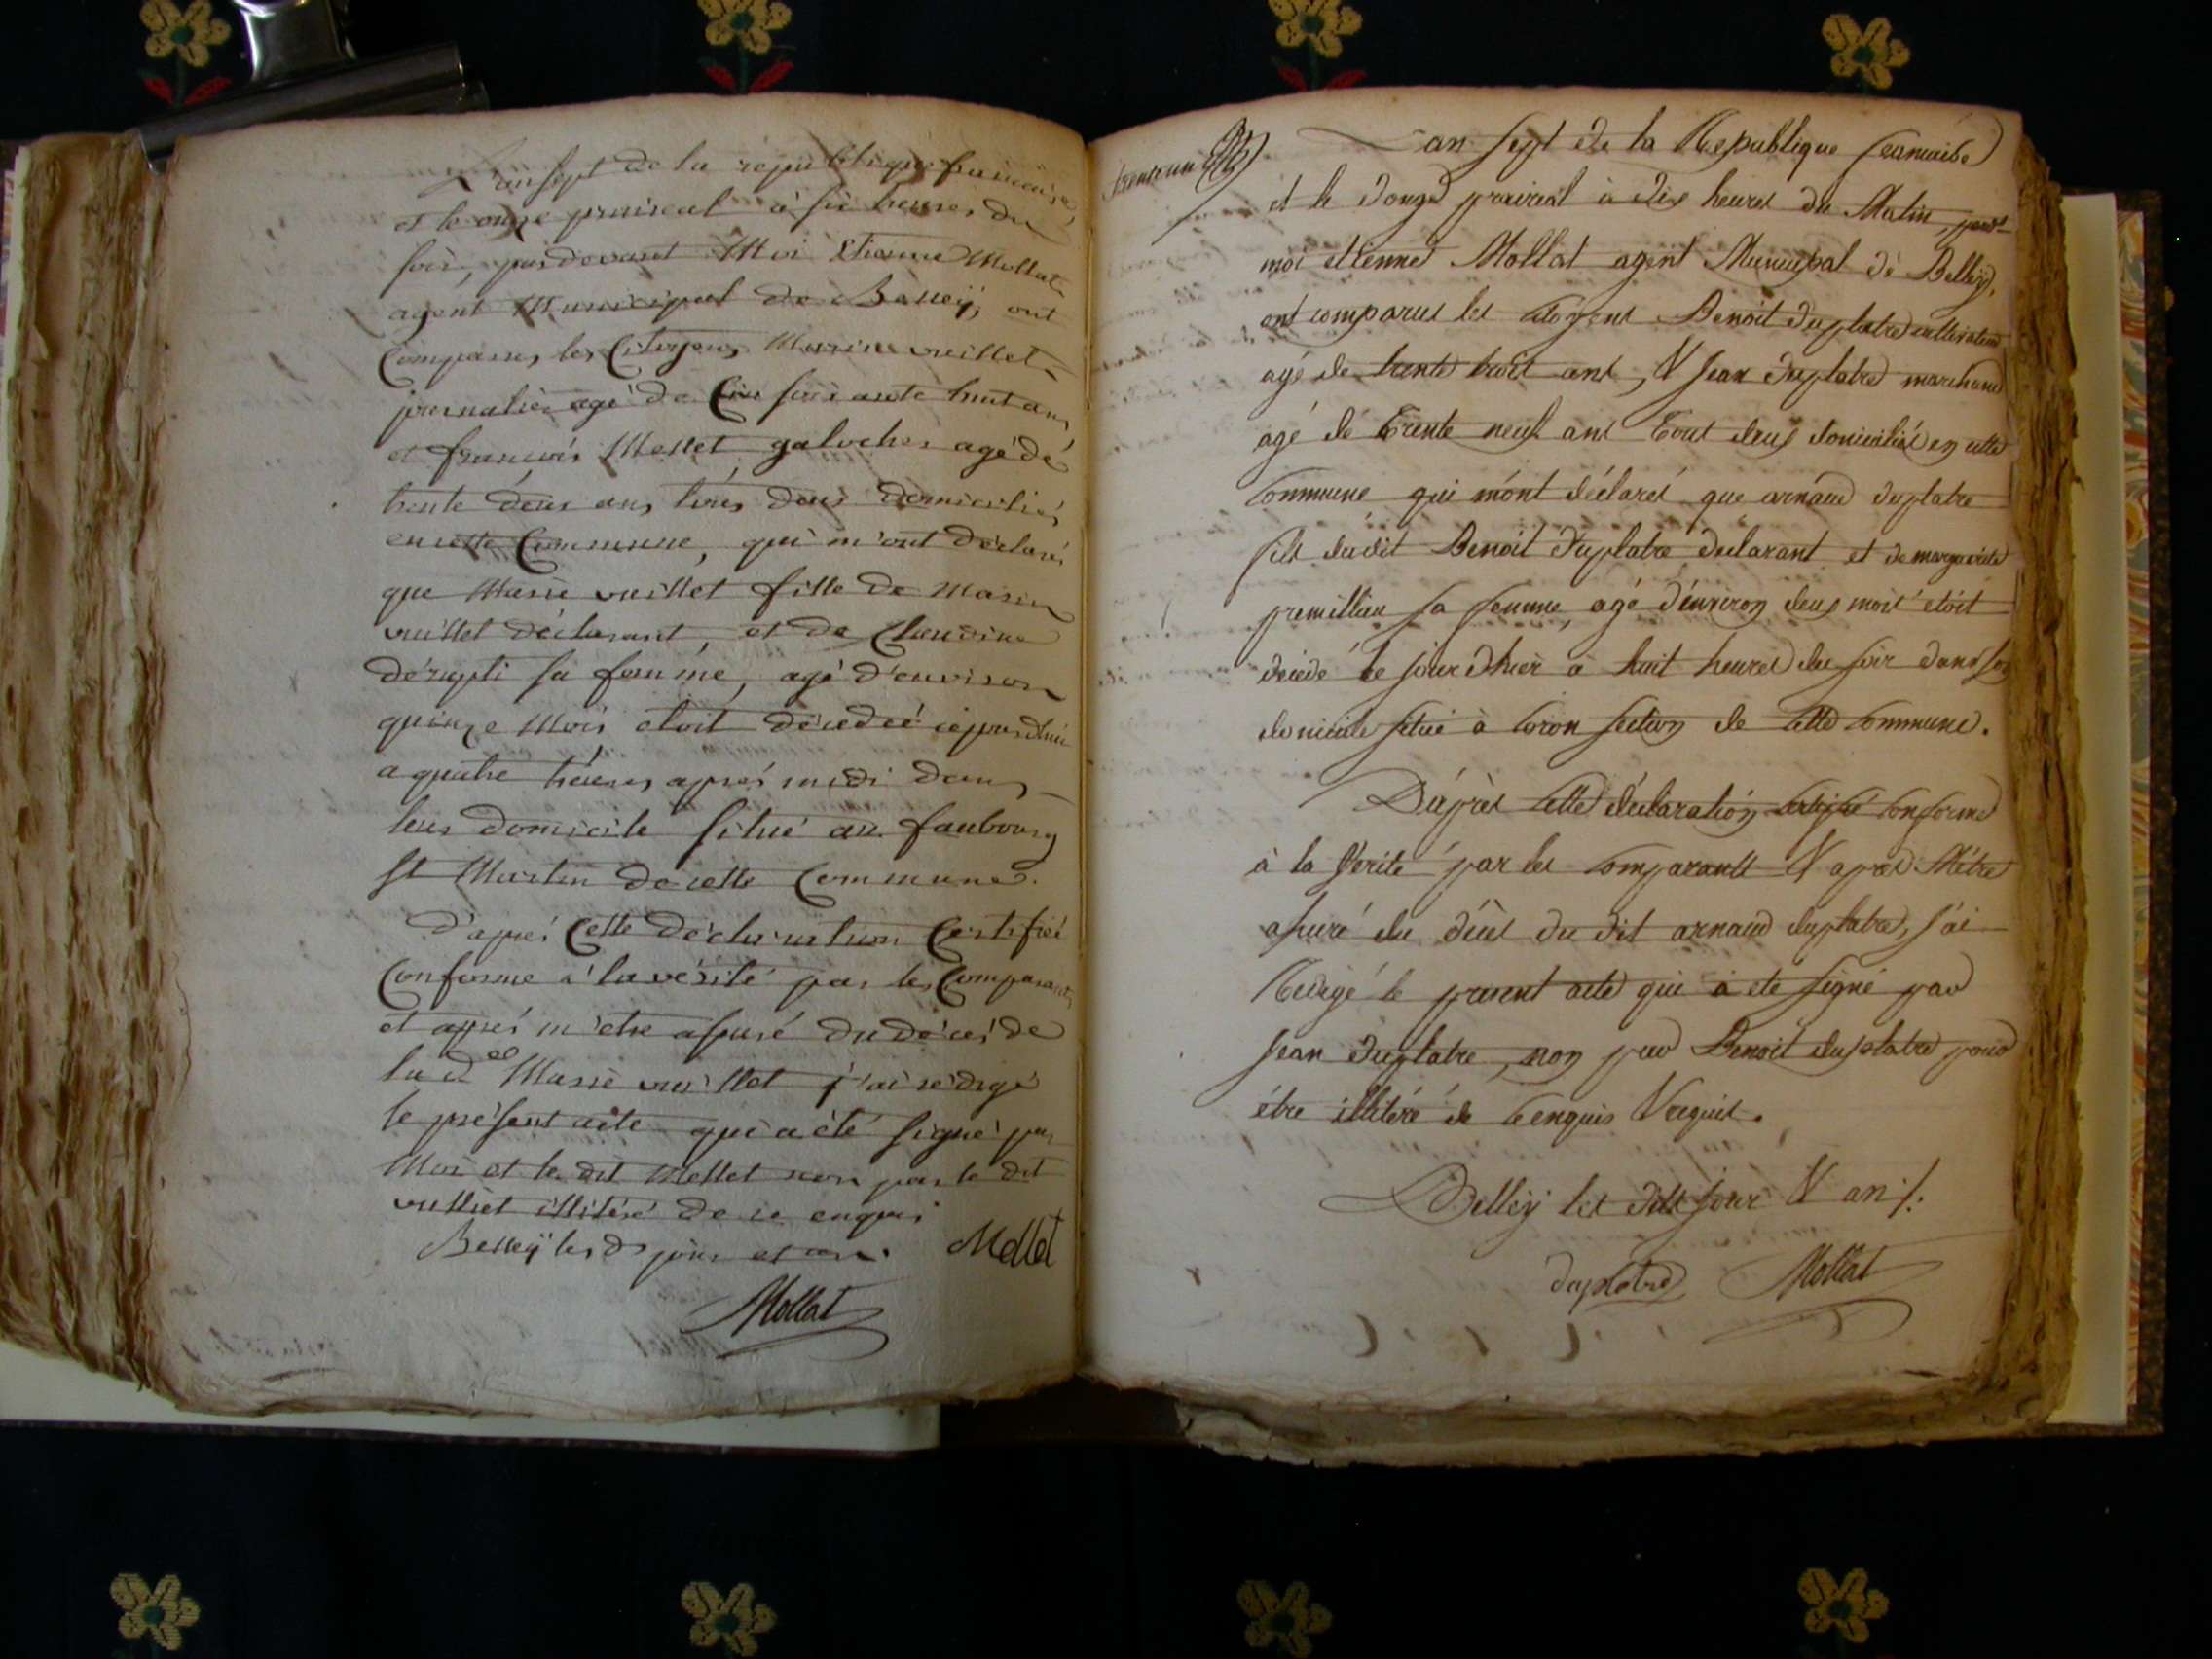 L'an sept de la republique francaise,
et le onze praireal à six heures du
soir, pardevant Moi Etienne Mollat
agent Municipal de Belleÿ, ont
Comparus les Citoyens Marin vuillet
journalier agé de soixante huit ans
et francois Mellet galocher agé de
trente deux ans tous deux domiciliés
en cette Commune, qui m'ont déclaré
que Marie vuillet fille de Marin
vuillet déclarant, et de Claudine
sa femme, agé d'environ
quinze Mois etoit décedeé cejourdhui
a quatre heures aprés midi dans
leur domicile situé au faubourg
St Martin de cette Commune.
D'aprés Cette Déclaration Certifiée
Conforme à la vérité par les Comparants
et aprés m'etre assuré du décés de
la de Marie vuillet j'ai rédigé
le présent acte qui a été signé par
Moi et le dit Mellet non par le dit
vulliet illitéré de ce enquis
Belleÿ les ds jour et an. Mellet
Mollat
trente un
L'an sept de la Republique francaise
et le douze prairial à dix heures du Matin, pardt
moi etienne Mollat agent Municipal de Belleÿ,
ont comparus les citoyens Benoit duplatre cultivateur
agé de trente trois ans, & Jean duplatre marchand
agé de Trente neuf ans Tous deux domiciliés en cette
Commune qui m'ont déclarés que arnaud duplatre
fils dudit Benoit duplatre déclarant et de marguerite
premillieu sa femme, agé d'environ deux mois etoit
décédé le jour d'hier à huit heures du soir dans son
domicile situé à Coron section de Cette Commune.
D'aprés Cette déclaration Certifié Conforme
à la Vérité par les Comparants & aprés M'être
assuré du décès du dit arnaud duplatre, j'ai
Redigé le present acte qui à eté signé par
Jean duplatre, non par Benoit duplatre pour
être illitéré de Ce enquis & requis.
Belleÿ les dits jour & an ./.
duplatre Mollat